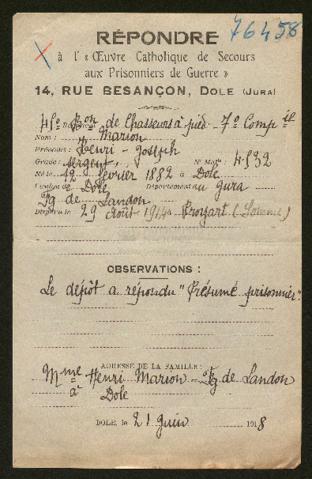 76458
RÉPONDRE
à l' « Œuvre Catholique de Secours
aux Prisonniers de Guerre »
14, RUE BESANÇON, DOLE (JURA)
Bon de Chasseurs à pied. 7e Comp
Nom : Marion
Prénoms : Henri - Joseph
Grade : Sergent, No Mle 4532
Né le 12 février 1882 à Dole
Dole Département du Jura
Fg de Landon
Disparu le 29 août 1914 à Proyart (Somme)
OBSERVATIONS :
Le dépôt a répondu "Présumé prisonnier".
ADRESSE DE LA FAMILLE :
Mme Henri Marion - Fg de Landon
à Dole
DOLE, le 21 Juin 1918